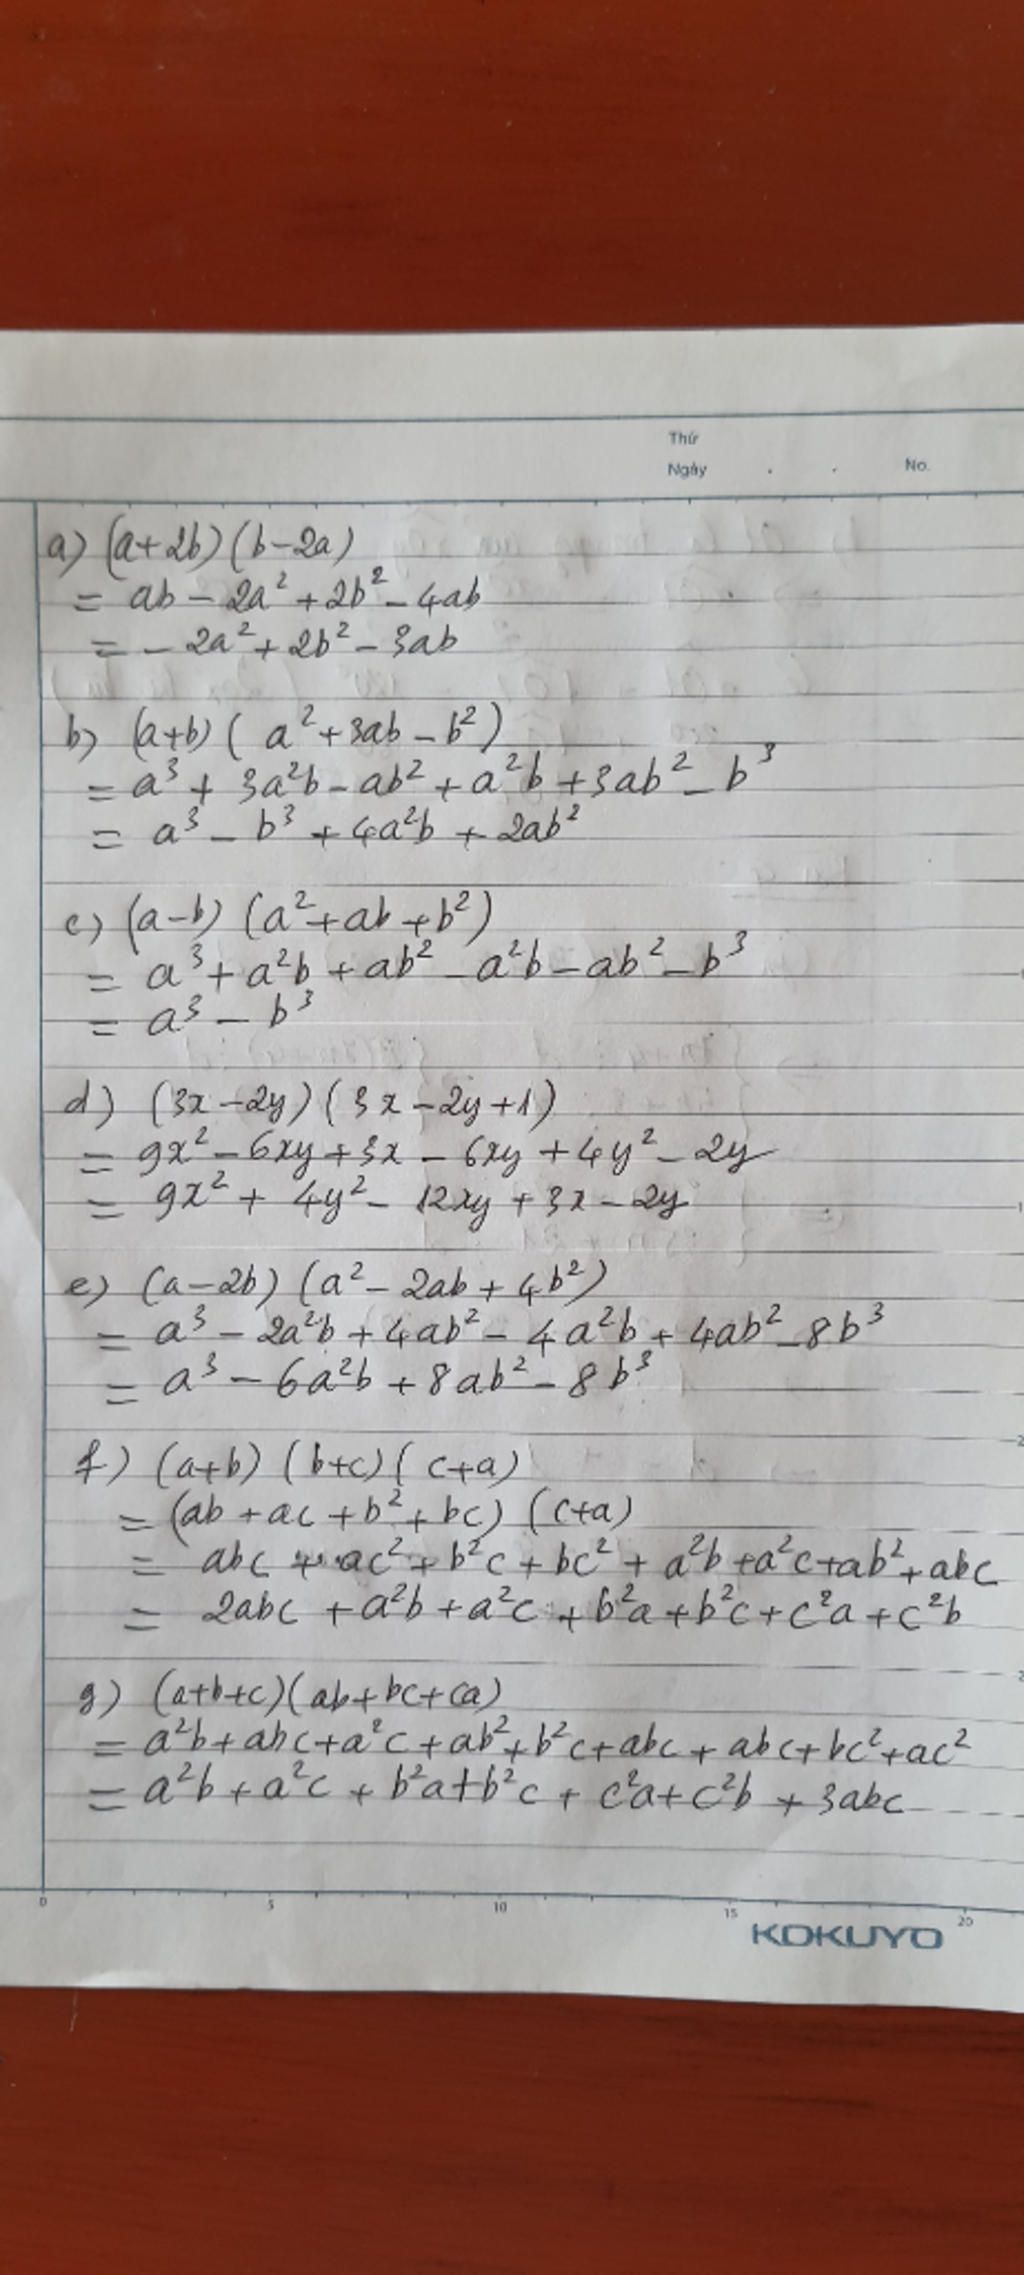 Thứ
Ngày . . No.
a) (a+2b)(b-2a)
= ab - 2a² + 2b² - 4ab
= - 2a² + 2b² - 3ab
b) (a+b)( a² + 3ab - b²)
= a³ + 3a²b - ab² + a²b + 3ab² - b³
= a³ - b³ + 4a²b + 2ab²
c) (a-b) (a² + ab + b²)
= a³ + a²b + ab² - a²b - ab² - b³
= a³ - b³
d) (3x - 2y)( 3x - 2y + 1)
= 9x² - 6xy + 3x - 6xy + 4y² - 2y
= 9x² + 4y² - 12xy + 3x - 2y
e) (a - 2b) (a² - 2ab + 4b²)
= a³ - 2a²b + 4ab² - 4a²b + 4ab² - 8b³
= a³ - 6a²b + 8ab² - 8b³
f) (a+b) (b+c)( c+a)
= (ab + ac + b² + bc) (c+a)
= abc + ac² + b²c + bc² + a²b + a²c + ab² + abc
= 2abc + a²b + a²c + b²a + b²c + c²a + c²b
g) (a+b+c)(ab+bc+ca)
= a²b + abc + a²c + ab² + b²c + abc + abc + bc² + ac²
= a²b + a²c + b²a + b²c + c²a + c²b + 3abc
0 5 10 15 20
KOKUYO